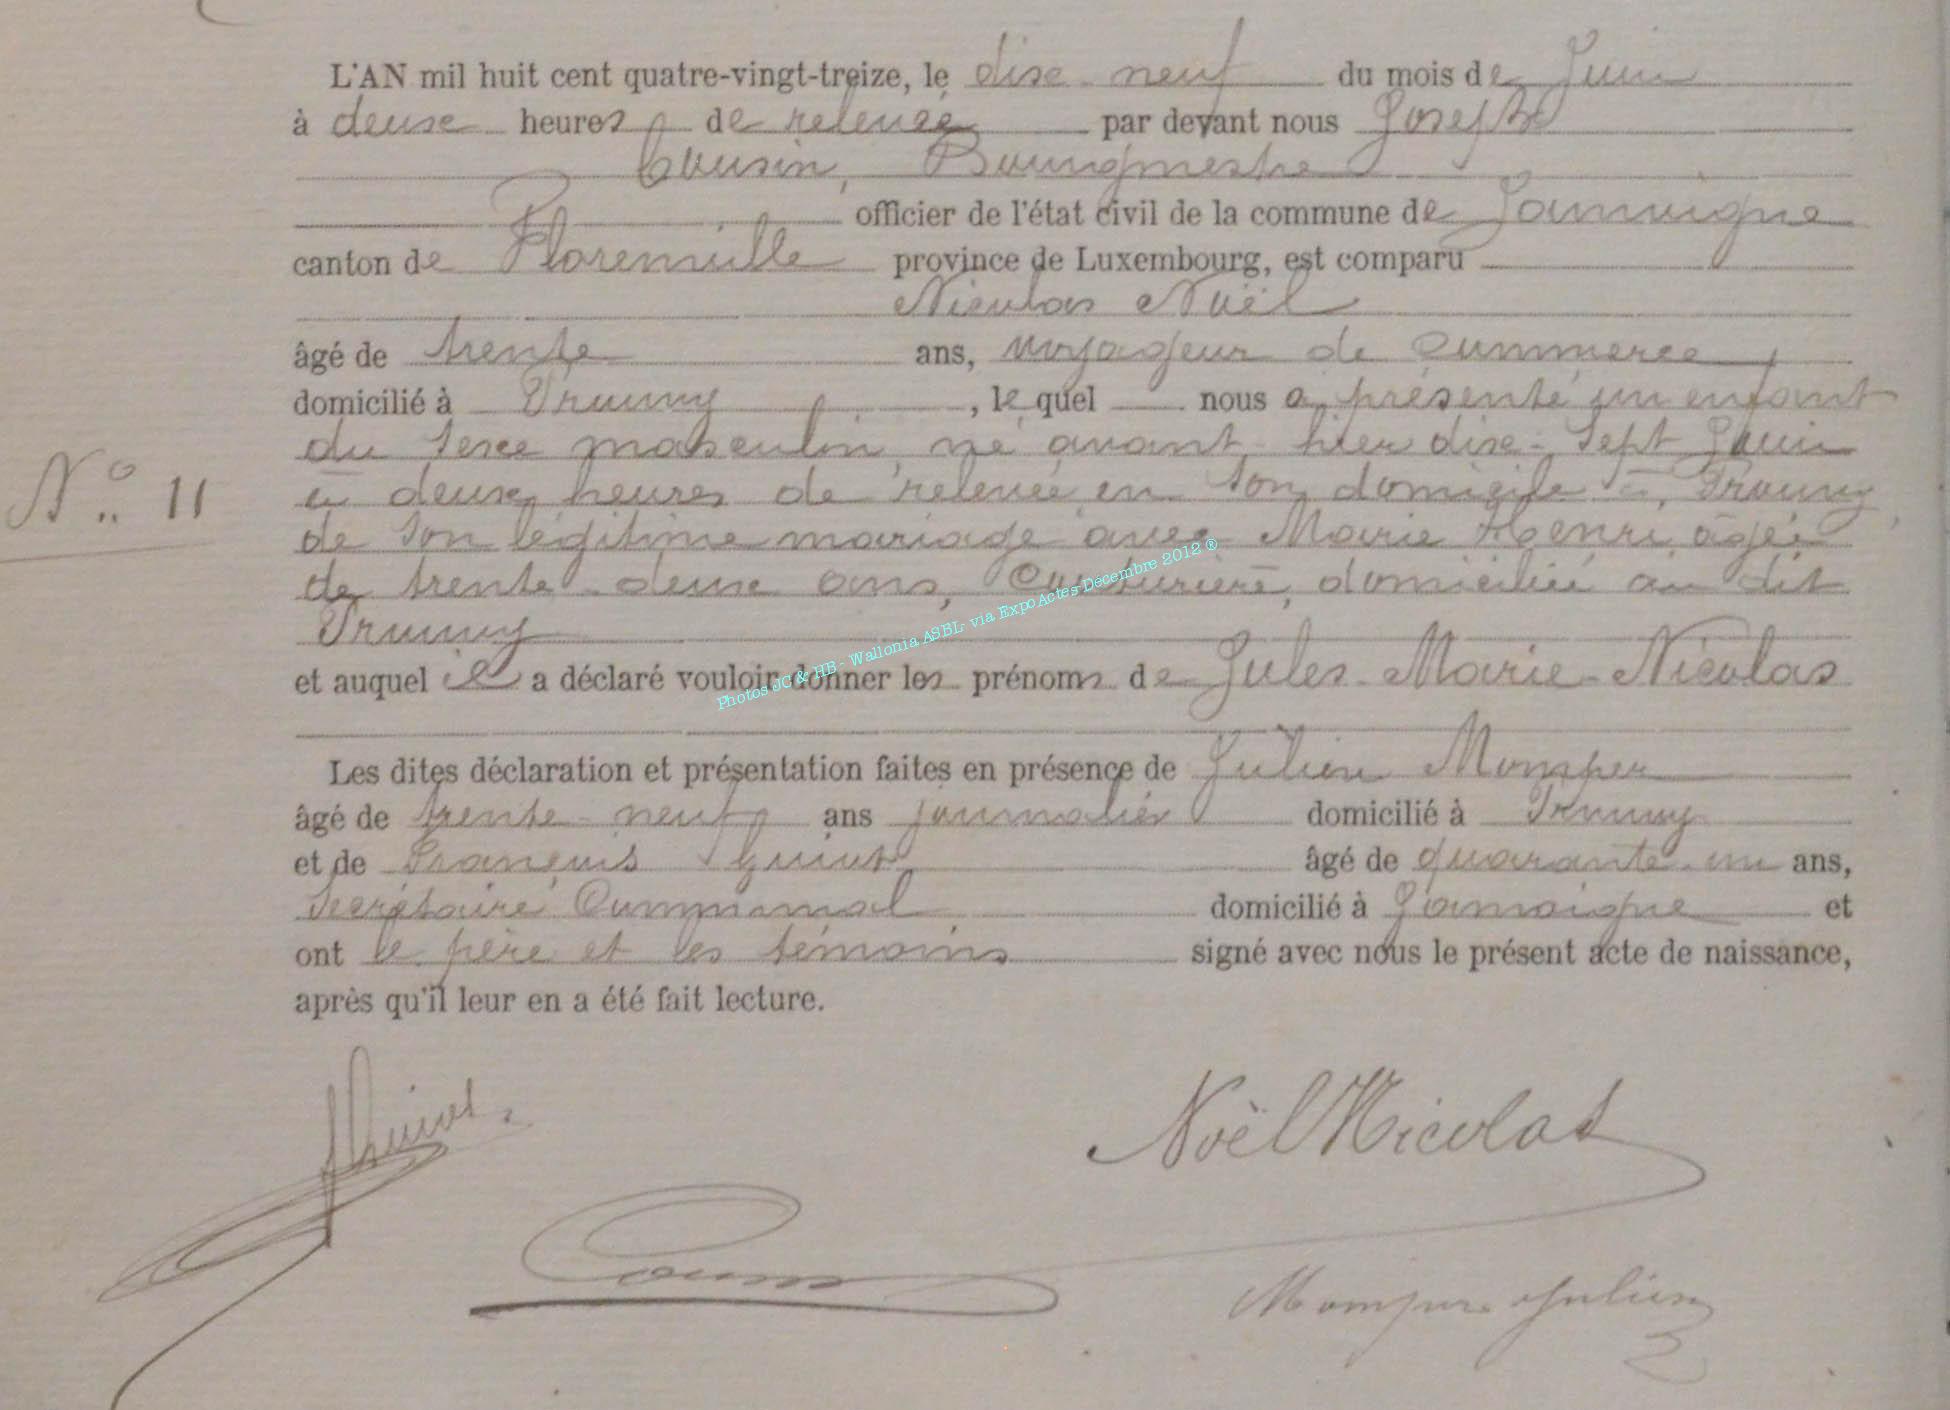 L'AN mil huit cent quatre-vingt-treize, le dixe neuf du mois de Juin
à deuxe heures de relevée par devant nous Joseph
Cousin, Bourgmestre
officier de l'état civil de la commune de Jamoigne
canton de Florenville province de Luxembourg, est comparu
Nicolas Noël
âgé de trente ans, voyageur de commerce,
domicilié à Prouvy, le quel nous a présenté un enfant
du sexe masculin, né avant-hier dixe-sept Juin
à deuxe heures de relevée en son domicile à Prouvy,
N° 11
de son légitime mariage avec Marie Henri, âgée
de trente-deuxe ans, Couturière, domiciliée au dit
Prouvy
et auquel il a déclaré vouloir donner les prénoms de Jules-Marie-Nicolas
Photos JC & HB - Wallonia ASBL- via ExpoActes-Décembre 2012 ®
Les dites déclaration et présentation faites en présence de Julien Momper
âgé de trente-neuf ans journalier domicilié à Prouvy
et de François Guiot âgé de quarante-un ans,
Secrétaire Communal domicilié à Jamoigne et
ont le père et les témoins signé avec nous le présent acte de naissance,
après qu'il leur en a été fait lecture.
Noël Nicolas
Cousin
Julien